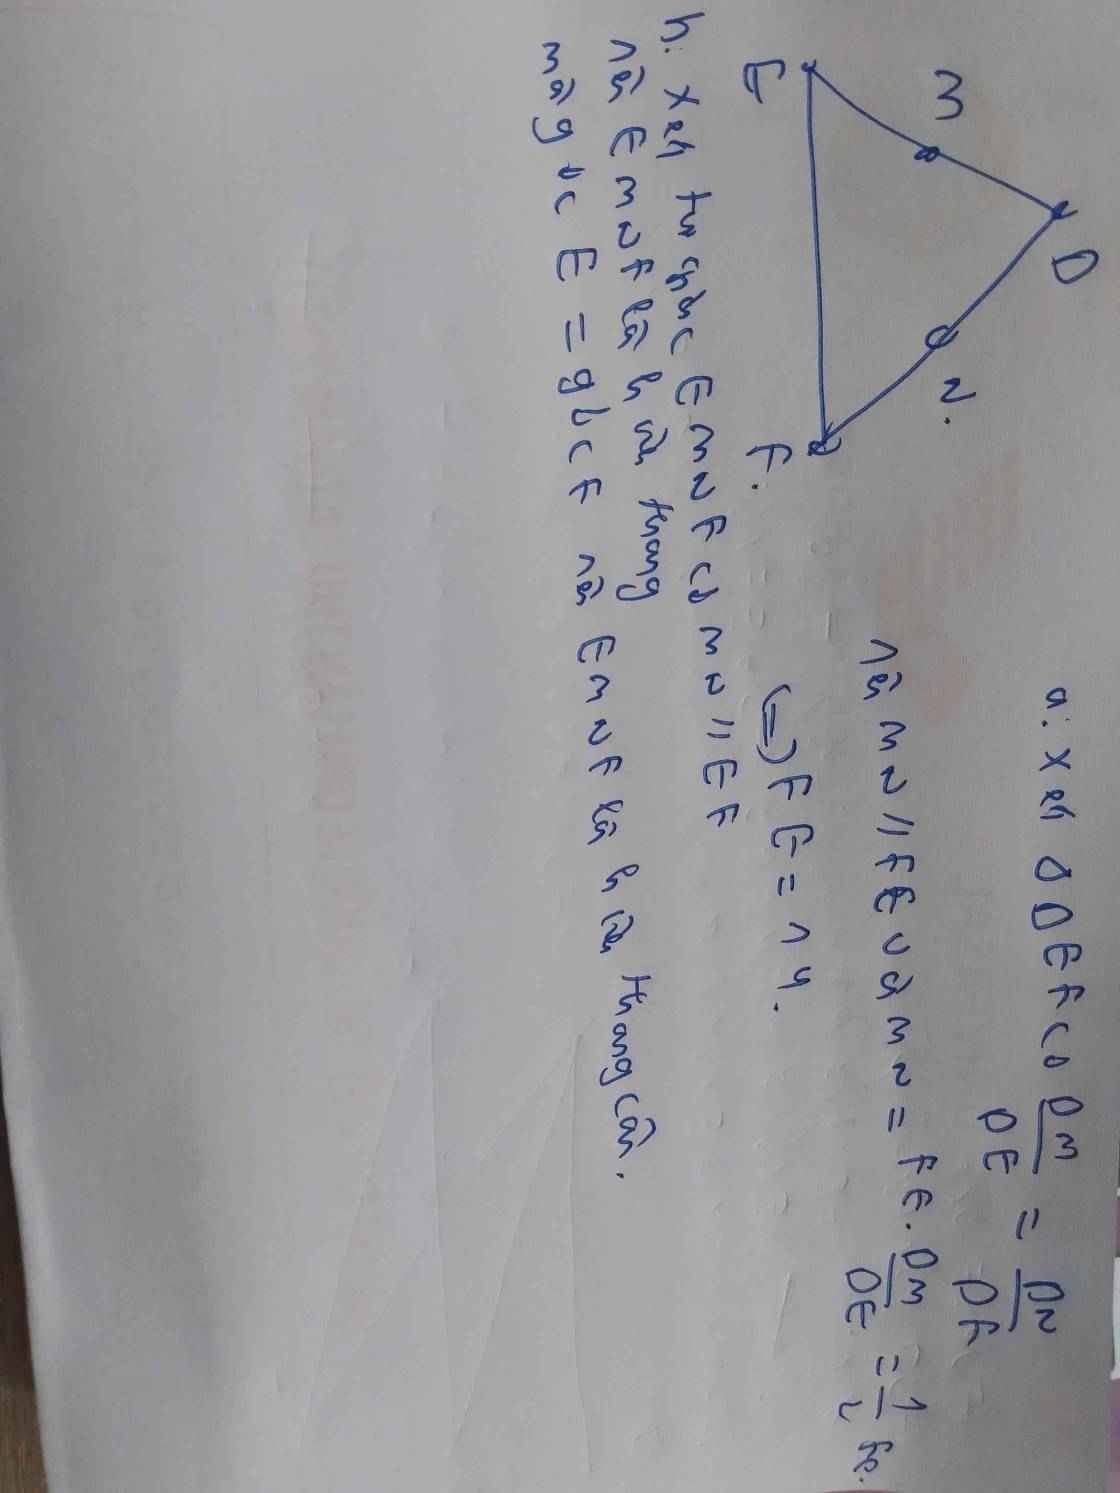 D
M
N.
E
F.
a: Xét ΔDEF có DM/DE = DN/DF
nên MN // FE và MN = FE. DM/DE = 1/2 FE.
(=) FE = 14.
b: Xét tứ giác EMNF có MN // EF
nên EMNF là hình thang
mà góc E = góc F nên EMNF là hình thang cân.